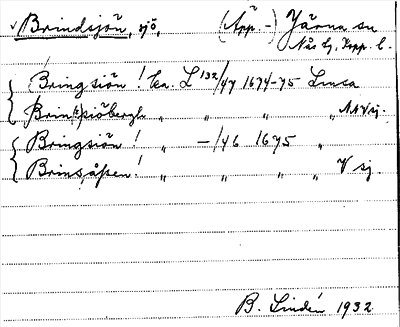 √ Brindsjön, sjö, (App.-) Järna sn
Nås hd, Kopp. l.
Bringsiön! Cca. L 132/47 1674-75 Lucca
Brin(s)siöbergh " " " " NNV sj.
Bringsiön! " —/46 1675 "
Brinsåssen! " " " " V sj.
B. Lindén 1932